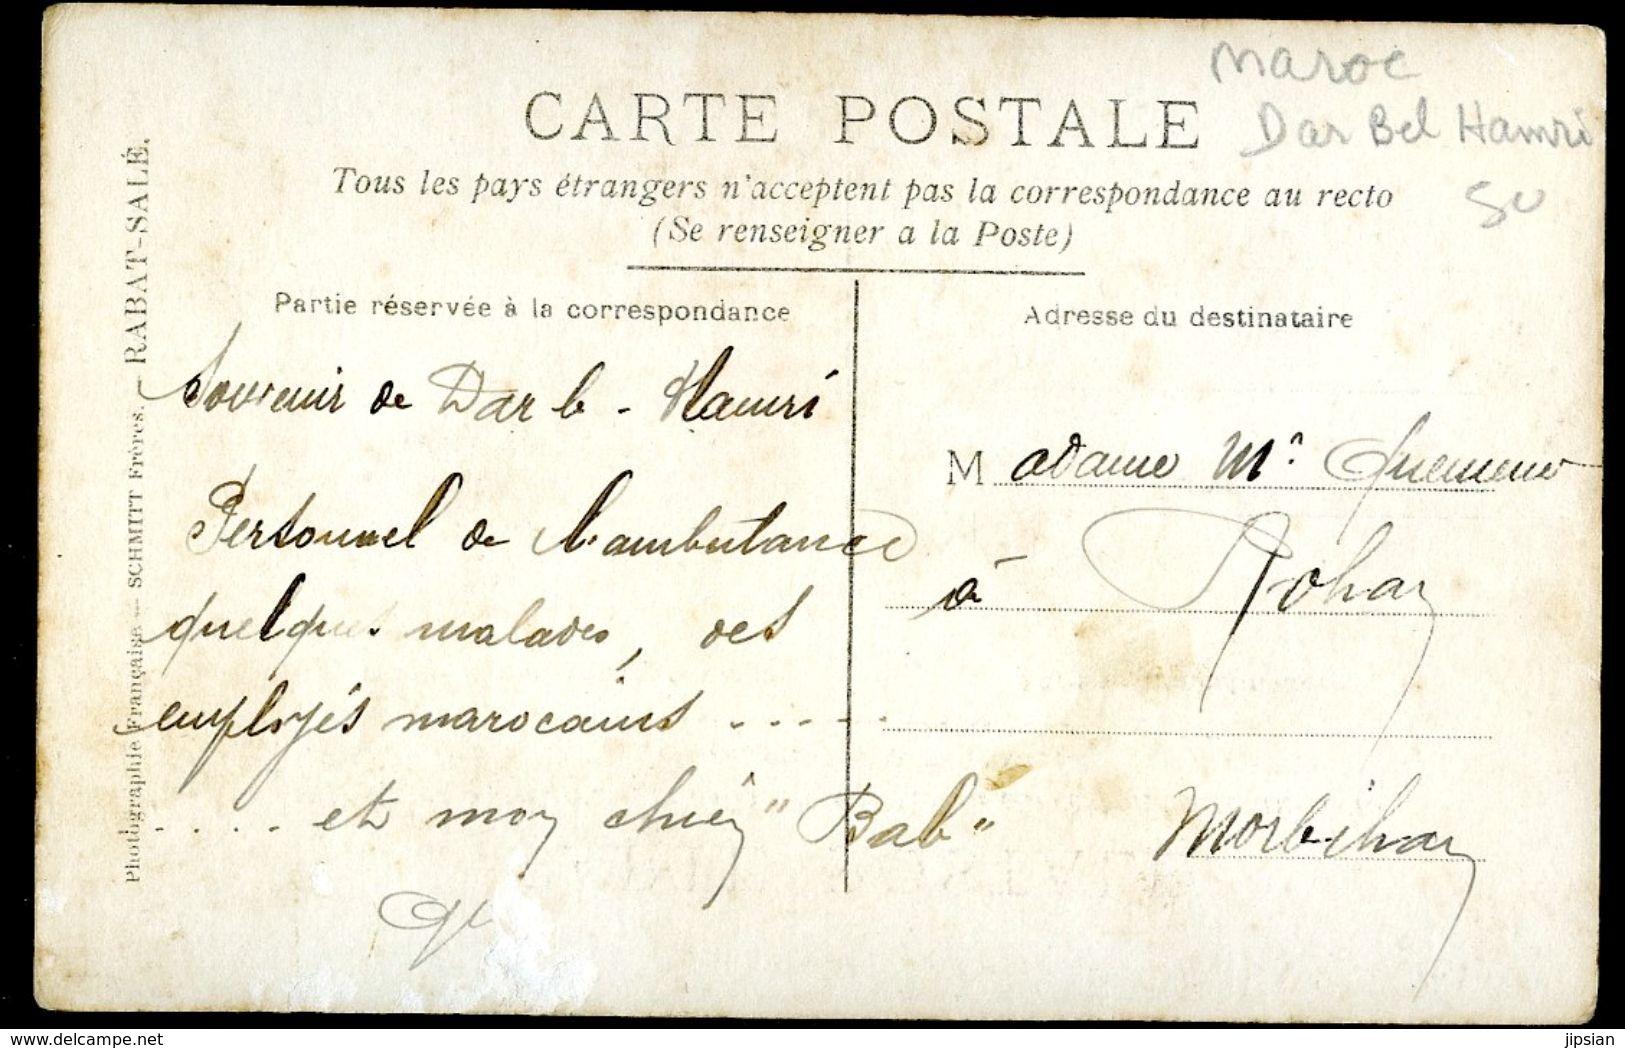 maroc
Dar Bel Hamri
50
CARTE POSTALE
Tous les pays étrangers n'acceptent pas la correspondance au recto
(Se renseigner a la Poste)
Photographie Française — SCHMITT Frères. — RABAT-SALÉ.
Partie réservée à la correspondance
Souvenir de Dar b - Hamri
Personnel de l'ambulance
quelques malades, des
employés marocains . . . . .
. . . . et moy chiêy "Bab"
Adresse du destinataire
Madame Mn Quemener
à Rohan
Morbihan
delcampe.net
jipsian